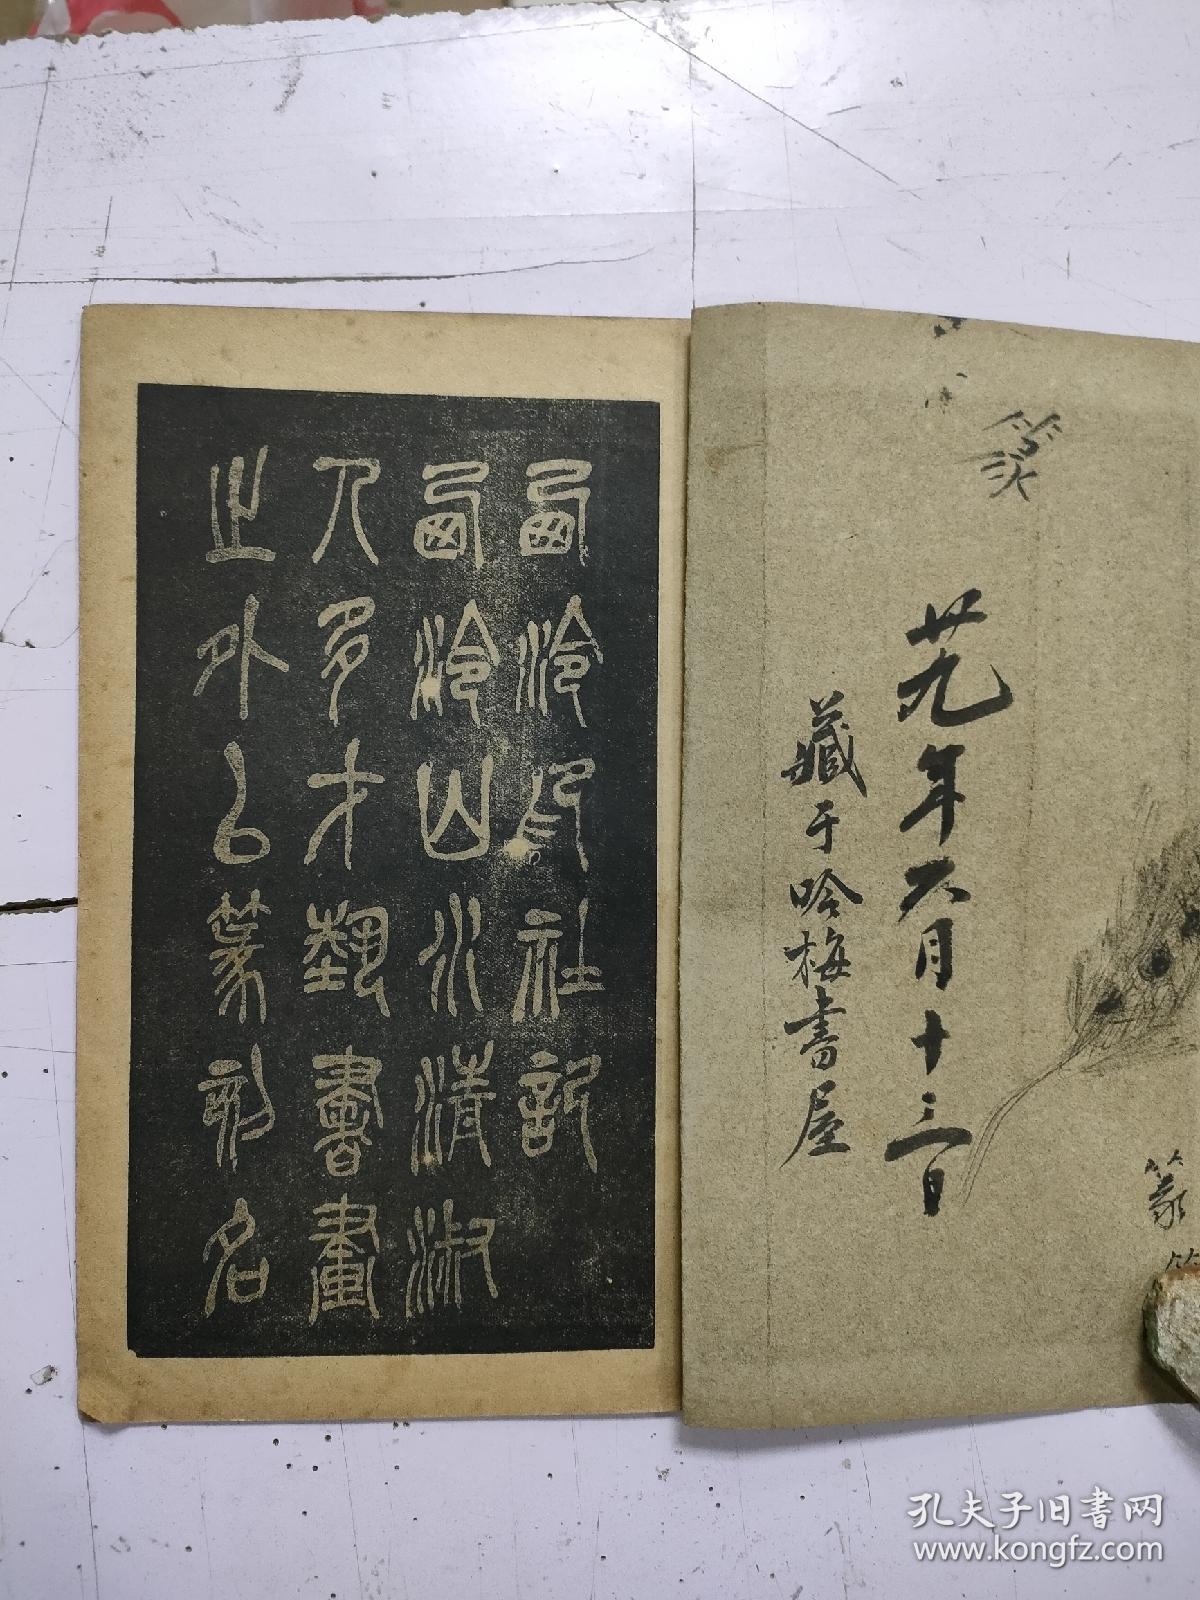 篆
廿九年六月十三日
藏于吟梅書屋
篆
西泠印社記
西泠山水清淑
人多才藝書畫
之外以篆刻名
孔夫子旧書网
www.kongfz.com